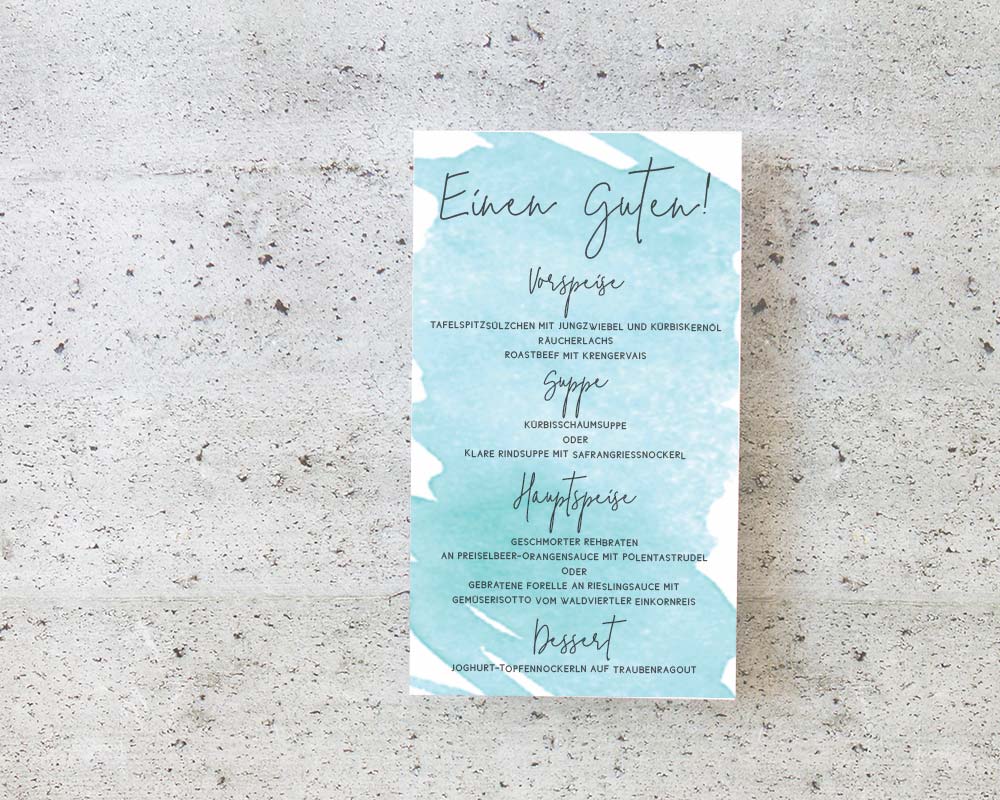 Einen Guten!
Vorspeise
TAFELSPITZSÜLZCHEN MIT JUNGZWIEBEL UND KÜRBISKERNÖL
RÄUCHERLACHS
ROASTBEEF MIT KRENGERVAIS
Suppe
KÜRBISSCHAUMSUPPE
ODER
KLARE RINDSUPPE MIT SAFRANGRIESSNOCKERL
Hauptspeise
GESCHMORTER REHBRATEN
AN PREISELBEER-ORANGENSAUCE MIT POLENTASTRUDEL
ODER
GEBRATENE FORELLE AN RIESLINGSAUCE MIT
GEMÜSERISOTTO VOM WALDVIERTLER EINKORNREIS
Dessert
JOGHURT-TOPFENNOCKERLN AUF TRAUBENRAGOUT